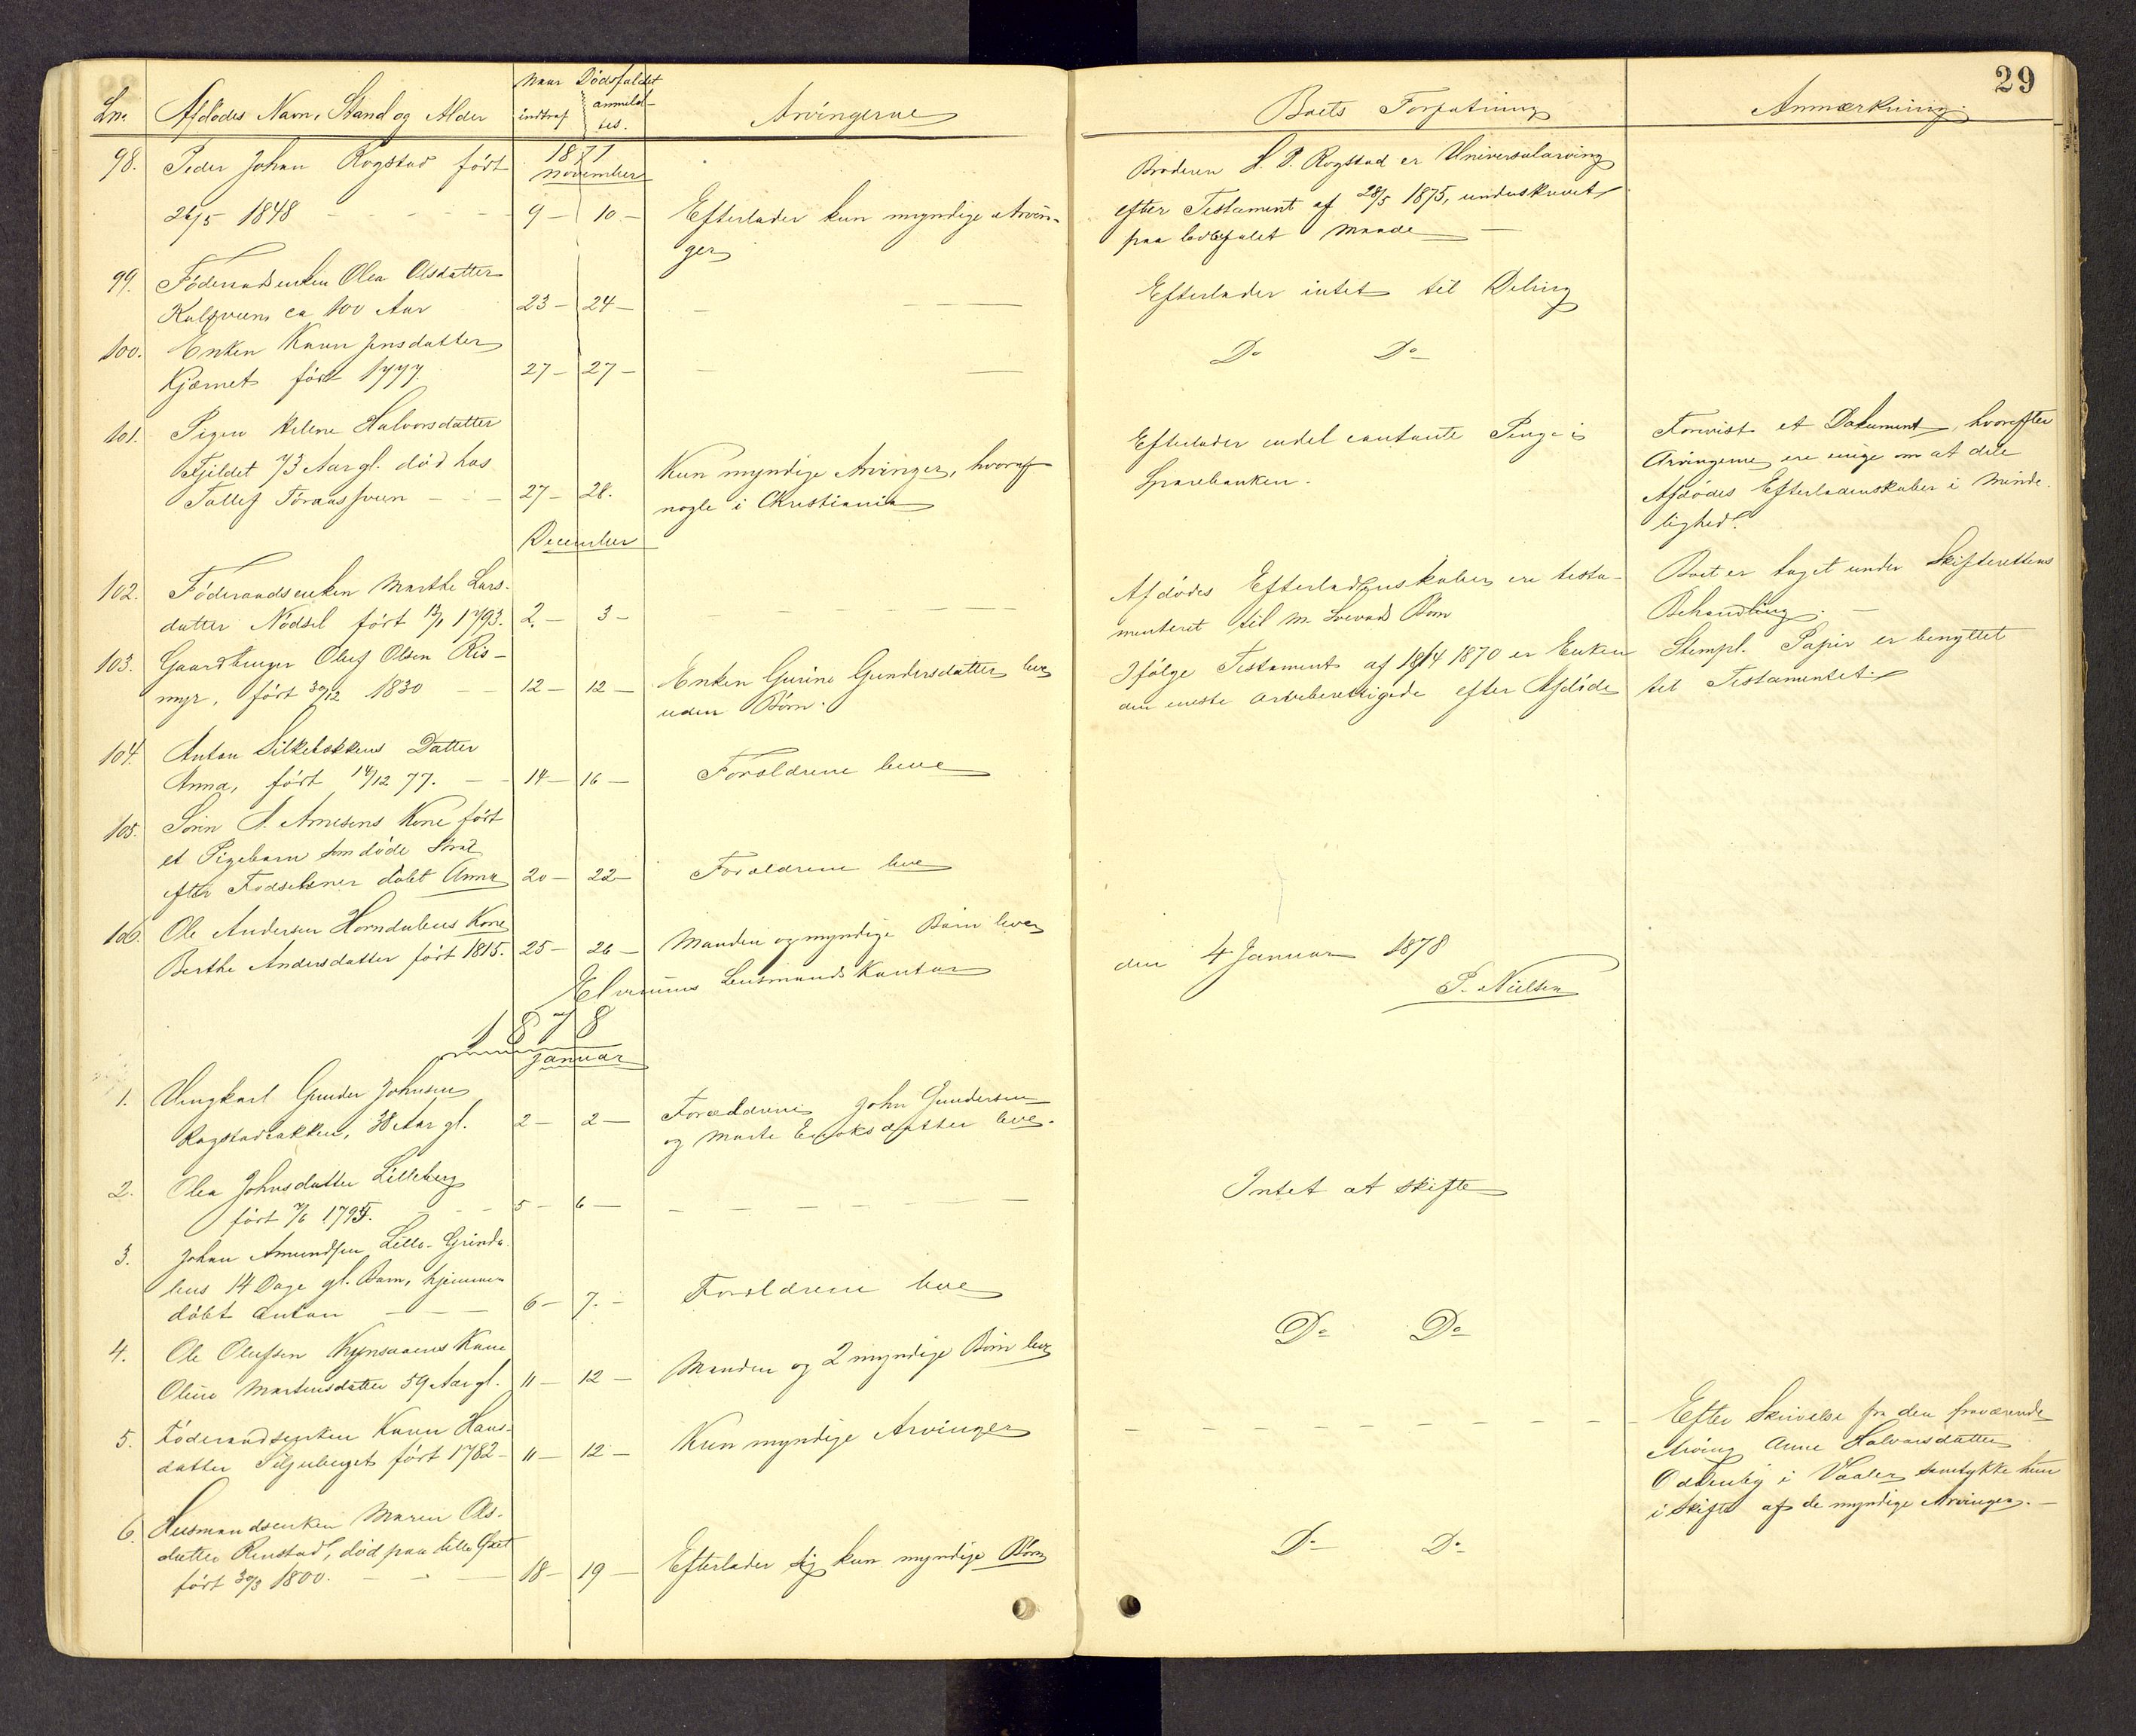 29
Lnr. Afdødes Navn, Stand og Alder Naar Dødsfaldet indtraf anmeldtes. Arvingerne Boets Forfatning Anmærkning.
1877
november
98. Peder Johan Rogstad født
26/5 1848 9 - 10 - Efterlader kun myndige Arvin-
ger
Broderen L. P. Rogstad er Universalarving
efter Testament af 28/5 1875, underskrevet
paa lovbefalet Maade
99. Føderaadsenken Olea Olsdatter
ca 100 Aar 23 - 24 - Efterlader intet til Deling
100. Enken Karen Jensdatter
Kjernet født 1777. 27 - 27 - Do Do
101. Pigen Helene Halvorsdatter
Fjeldet 73 Aar gl. død hos
27 - 28.
Kun myndige Arvinger, hvoraf
nogle i Christiania
Efterlader endel contante Penge i
Sparebanken.
Forevist et Dokument, hvorefter
Arvingerne ere enige om at dele
Afdødes Efterladenskaber i Minde-
lighed.
December
102. Føderaadsenken Marthe Lars-
datter Nødsel født 1793. 2. - 3 -
Afdødes Efterladenskaber ere testa-
menteret til M. Børn
Boet er taget under Skifterettens
Behandling. -
103. Gaardbruger Oluf Olsen Ris-
myr, født 30/12 1830 12 - 12 - Enken Gurine Gundersdatter lever
uden Børn.
Ifølge Testament af 18/4 1870 er Enken
den eneste arveberettigede efter Afdøde
Stempl. Papir er benyttet
til Testamentet.
104. Anton Silkebækkens Datter
Anna, født 14/12 77. - 14 - 16 - Forældrene leve
105. Søren A. Arnesens Kone født
et Pigebarn som døde strax
efter Fødselen er døbt Anna 20 - 22 - Forældrene leve
106. Ole Andersen Horndalens Kone
Berthe Andersdatter født 1815. 25 - 26 - Manden og myndige Børn lever
Elverums Lensmands Kontor
den 4 Januar 1878
P. Nielsen
1878
Januar
1. Ungkarl Gunder Johnsen
Rogstadbakken, 38 Aar gl. 2 - 2 - Forældrene John Gundersen
og Marte Eriksdatter leve.
2. Olea Johnsdatter Lilleberg
født 7/6 1795. 5 - 6 - Intet at skifte
3. Johan Amundsen Lille-Grinda-
lens 14 Dage gl. Barn, hjemme
døbt Anton 6 - 7. - Forældrene leve
Do Do
4. Ole Olufsen Kynsaaens Kone
Oline Martensdatter 59 Aar gl. 11 - 12 - Manden og 2 myndige Børn leve
5. Føderaadsenken Karen Hans-
datter Siljuberget født 1782 - 11 - 12 - Kun myndige Arvinger
Efter Skrivelse fra den fraværende
Arving Anne Halvorsdatter
Oddenby i Vaaler samtykke hun
i Skifte af de myndige Arvinger. -
6. Husmandsenken Maren Ols-
datter Renstad, død paa Lille Gjæt
født 30/3 1800. 18 - 19 - Efterlader sig kun myndige Børn
Do Do